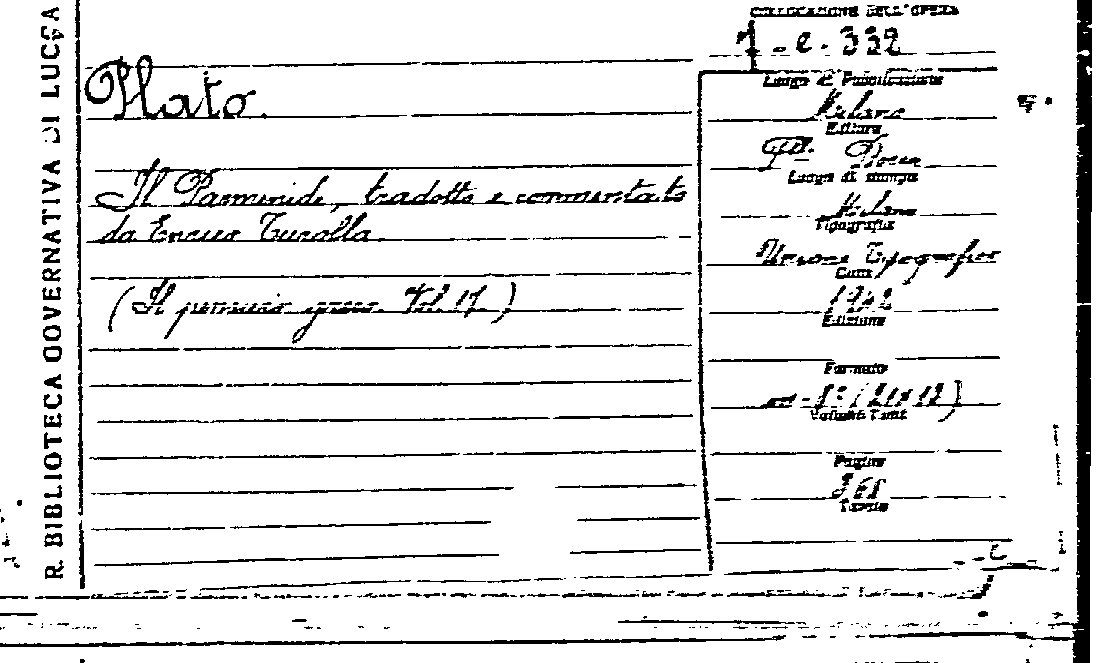 R. BIBLIOTECA GOVERNATIVA DI LUCCA
COLLOCAZIONE DELL'OPERA
- e. 332
Plato.
Il Parmenide, tradotto e commentato
da Enrico Turolla.
(Il pensiero greco. Vol. 17)
Luogo di Pubblicazione
Milano
Editore
Flli Bocca
Luogo di stampa
Milano
Tipografia
Unione Tipografica
Data
1942
Edizione
Formato
Volumi Tomi
Pagine
Tavole